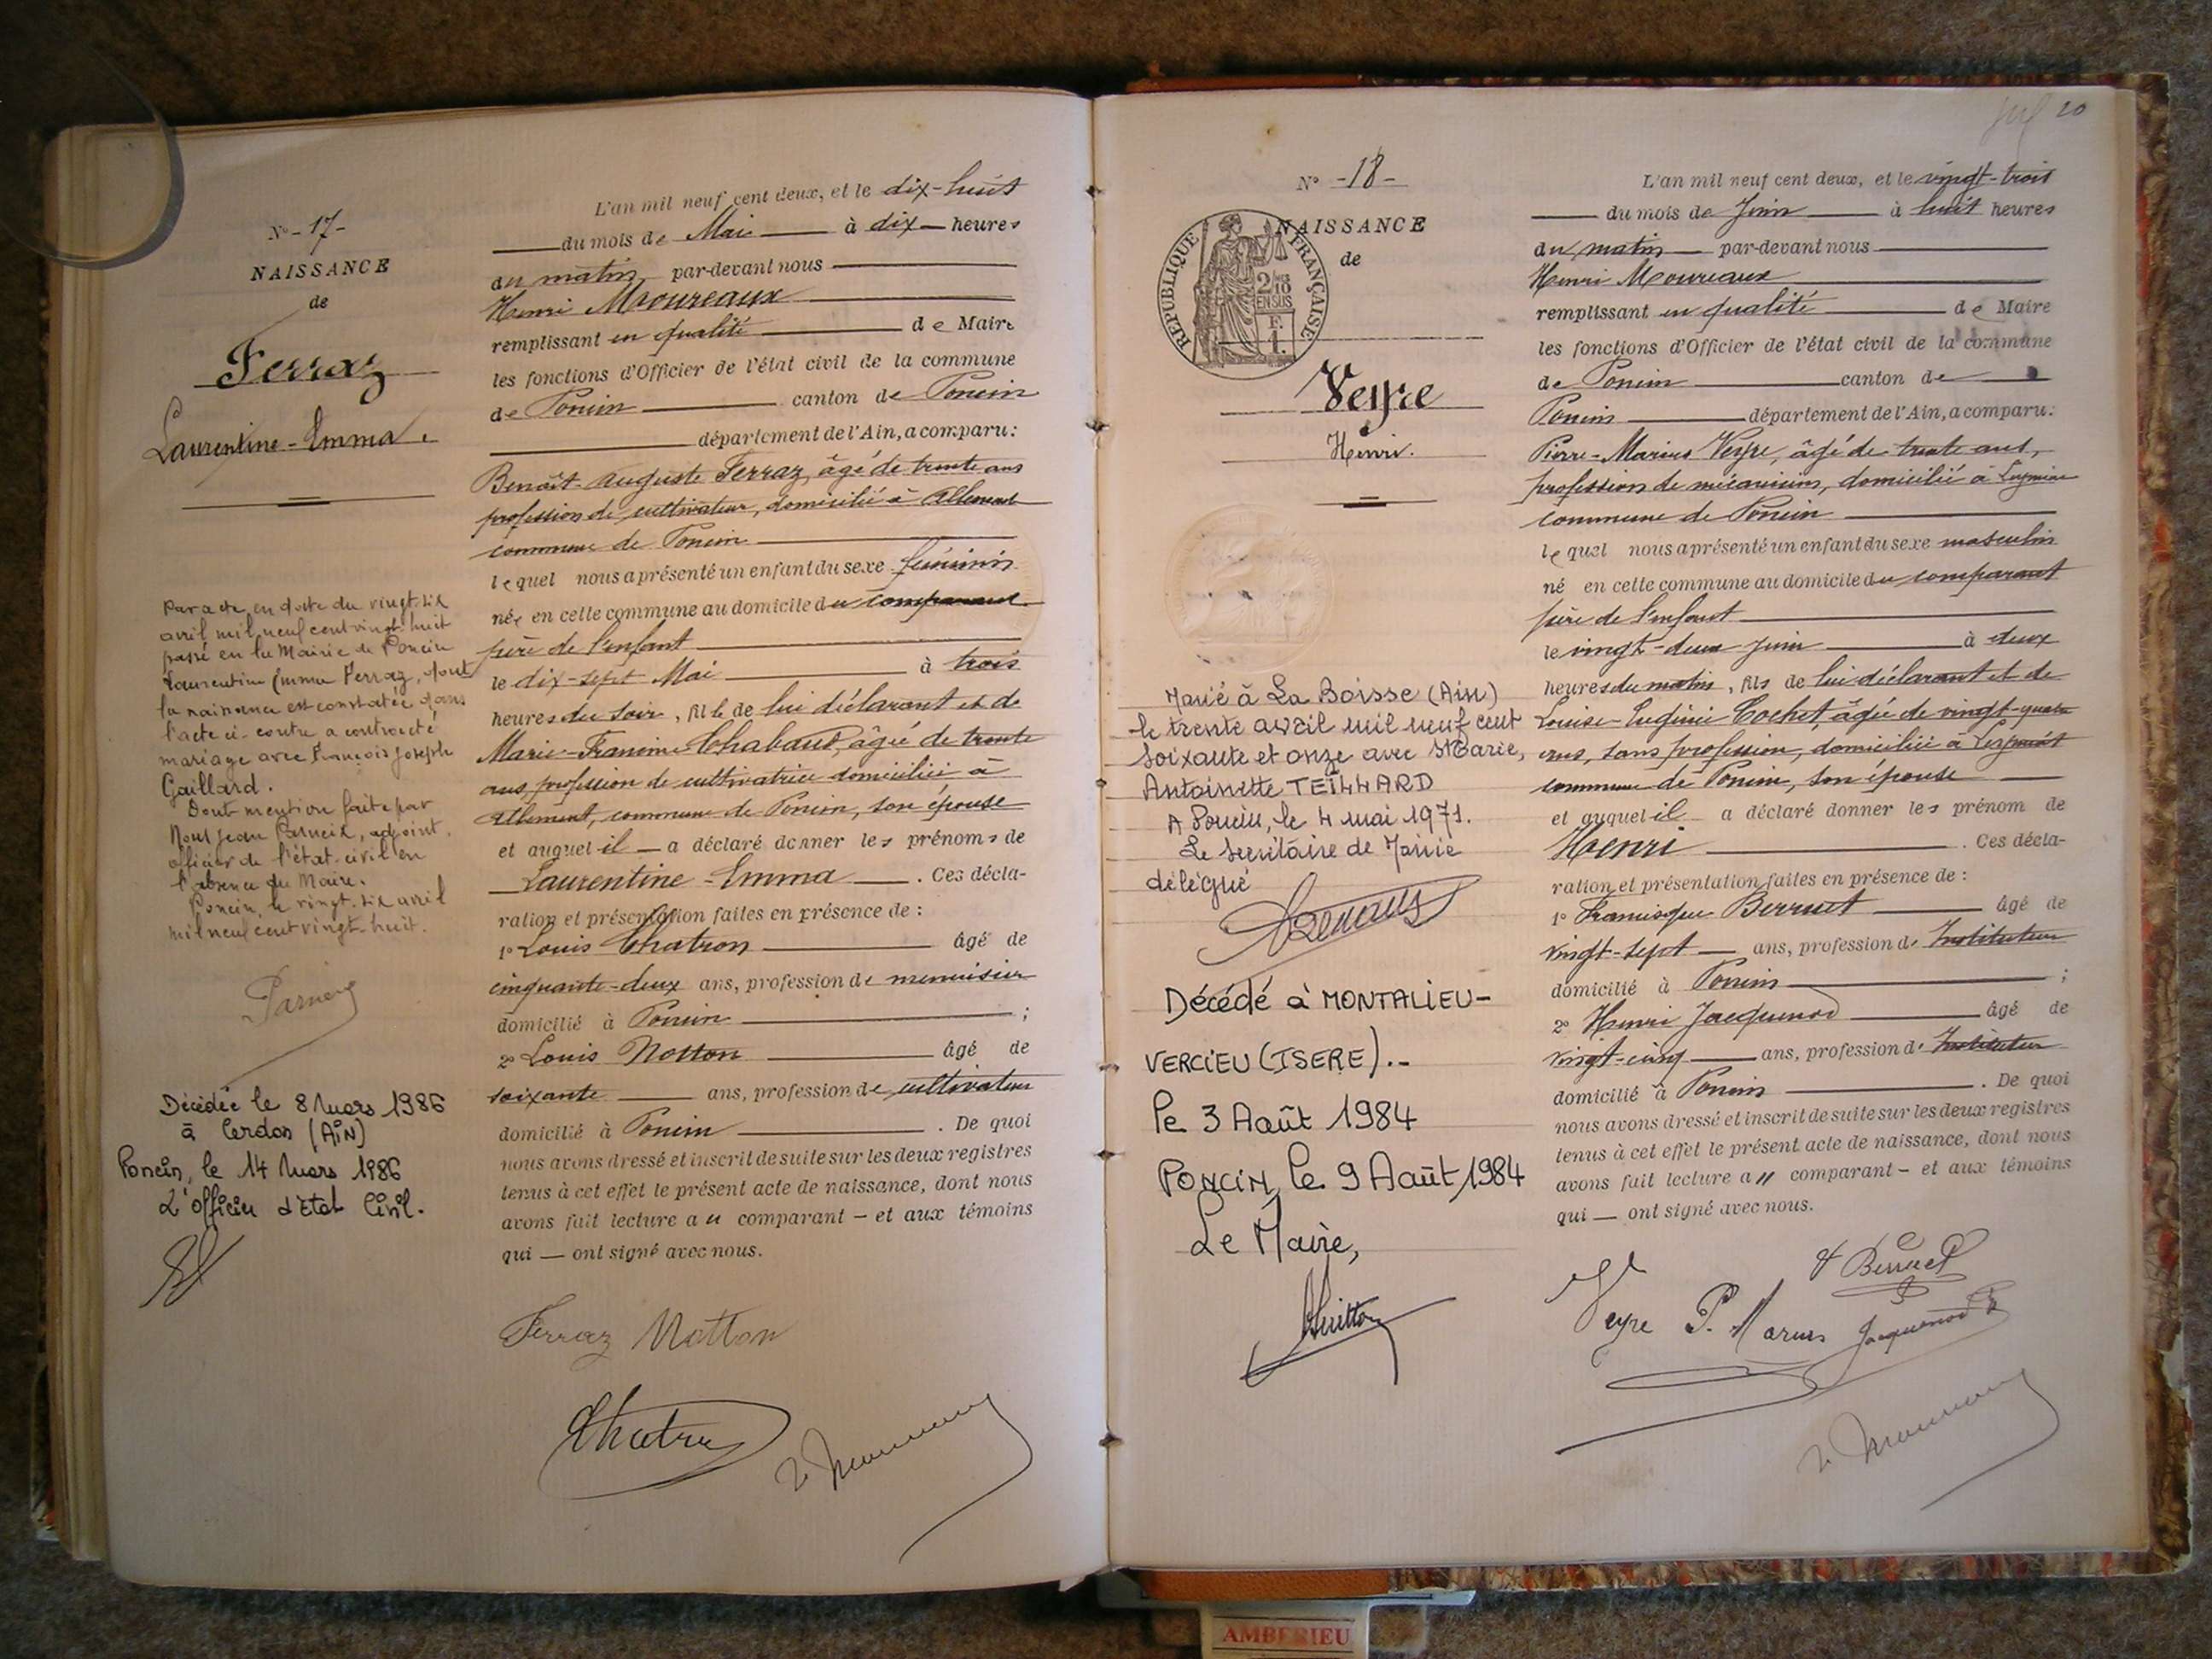 N° - 17 -
NAISSANCE
de
Ferraz
Laurentine - Emma.
Par acte en date du vingt-six
avril mil neuf cent vingt-huit
passé en la Mairie de Poncin
Laurentine Emma Ferraz, dont
la naissance est constatée dans
l'acte ci-contre a contracté
mariage avec François Joseph
Gaillard.
Dont mention faite par
Nous Jean, adjoint,
officier de l'état-civil en
l'absence du Maire.
Poncin, le vingt-six avril
mil neuf cent vingt-huit.
Décédée le 8 Mars 1986
à Cerdon (AIN)
Poncin, le 14 Mars 1986
L'Officier d'Etat Civil.
L'an mil neuf cent deux, et le dix-huit
du mois de Mai à dix heures
du matin par-devant nous
Henri Moureaux
remplissant en qualité de Maire
les fonctions d'Officier de l'état civil de la commune
de Poncin canton de Poncin
département de l'Ain, a comparu :
Benoît-Auguste Ferraz, âgé de trente ans
profession de cultivateur, domicilié à Allement
commune de Poncin
lequel nous a présenté un enfant du sexe féminin
née en cette commune au domicile du comparant
père de l'enfant
le dix-sept Mai à trois
heures du soir, fille de lui déclarant et de
Marie-Francine Chabaud, âgée de trente
ans, profession de cultivatrice domiciliée à
Allement, commune de Poncin, son épouse
et auquel il a déclaré donner les prénoms de
Laurentine - Emma. Ces décla-
ration et présentation faites en présence de :
1° Louis Chatron âgé de
cinquante-deux ans, profession de menuisier
domicilié à Poncin ;
2° Louis Notton âgé de
soixante ans, profession de cultivateur
domicilié à Poncin. De quoi
nous avons dressé et inscrit de suite sur les deux registres
tenus à cet effet le présent acte de naissance, dont nous
avons fait lecture au comparant - et aux témoins
qui — ont signé avec nous.
Ferraz Notton
Chatron
20
N° - 18 -
NAISSANCE
de
REPUBLIQUE FRANÇAISE
2/10 EN SUS
Veyre
Henri.
Marié à La Boisse (Ain)
le trente avril mil neuf cent
soixante et onze avec Marie,
Antoinette TEILLARD
A Poncin, le 4 mai 1971.
Le Secrétaire de Mairie
délégué
Décédé à MONTALIEU-
VERCIEU (ISERE).-
le 3 Août 1984
PONCIN, le 9 Août 1984
Le Maire,
L'an mil neuf cent deux, et le vingt-trois
du mois de Juin à huit heures
du matin par-devant nous
Henri Moureaux
remplissant en qualité de Maire
les fonctions d'Officier de l'état civil de la commune
de Poncin canton de
Poncin département de l'Ain, a comparu :
Pierre-Marius Veyre, âgé de trente ans,
profession de mécanicien, domicilié à
commune de Poncin
lequel nous a présenté un enfant du sexe masculin
né en cette commune au domicile du comparant
père de l'enfant
le vingt-deux juin à deux
heures du matin, fils de lui déclarant et de
Louise-Eugénie Cochet, âgée de vingt-quatre
ans, sans profession, domiciliée à
commune de Poncin, son épouse
et auquel il a déclaré donner les prénom de
Henri. Ces décla-
ration et présentation faites en présence de :
1° Francisque Berruet âgé de
vingt-sept ans, profession d'Instituteur
domicilié à Poncin ;
2° Henri Jacquenod âgé de
vingt-cinq ans, profession d'Instituteur
domicilié à Poncin. De quoi
nous avons dressé et inscrit de suite sur les deux registres
tenus à cet effet le présent acte de naissance, dont nous
avons fait lecture au comparant - et aux témoins
qui — ont signé avec nous.
Berruet
Veyre P. Marius Jacquenod
AMBERIEU